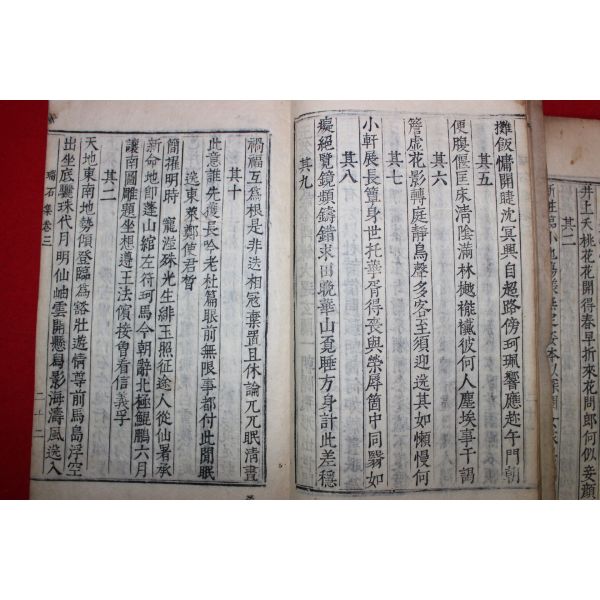 井上夭桃花花開得春早折來花問郎何似妾顏
其二
攤飯慵開睫沈冥興自超路傍珂珮響應趁午門朝
其五
便腹偃匡床淸陰滿林樾褦襶彼何人塵埃事干謁
其六
簷虛花影轉庭靜鳥聲多客至須迎送其如懶慢何
其七
小軒展長簟身世托華胥得喪與榮辱箇中同翳如
其八
癡絕覽鏡頻鑄錯求田晩華山覓睡方身計此差穩
其九
禍福互爲根是非迭相冠棄置且休論兀兀眠淸晝
其十
此意誰先獲長吟老杜篇眼前無限事都付此閒眠
送東萊鄭使君晳
簡擢明時 寵 硃光生緋玉照征途人從仙署承
新命地卽蓬山綰左符珂馬今朝辭北極鯤鵬六月
讓南圖雕題坐想遵王法傾接曾看信義孚
其二
天地東南地勢傾登臨爲豁壯遊情尊前馬島浮空
出坐底驪珠代月明仙岫雲開懸舄影海濤風送入
瑞石集卷三 二十二